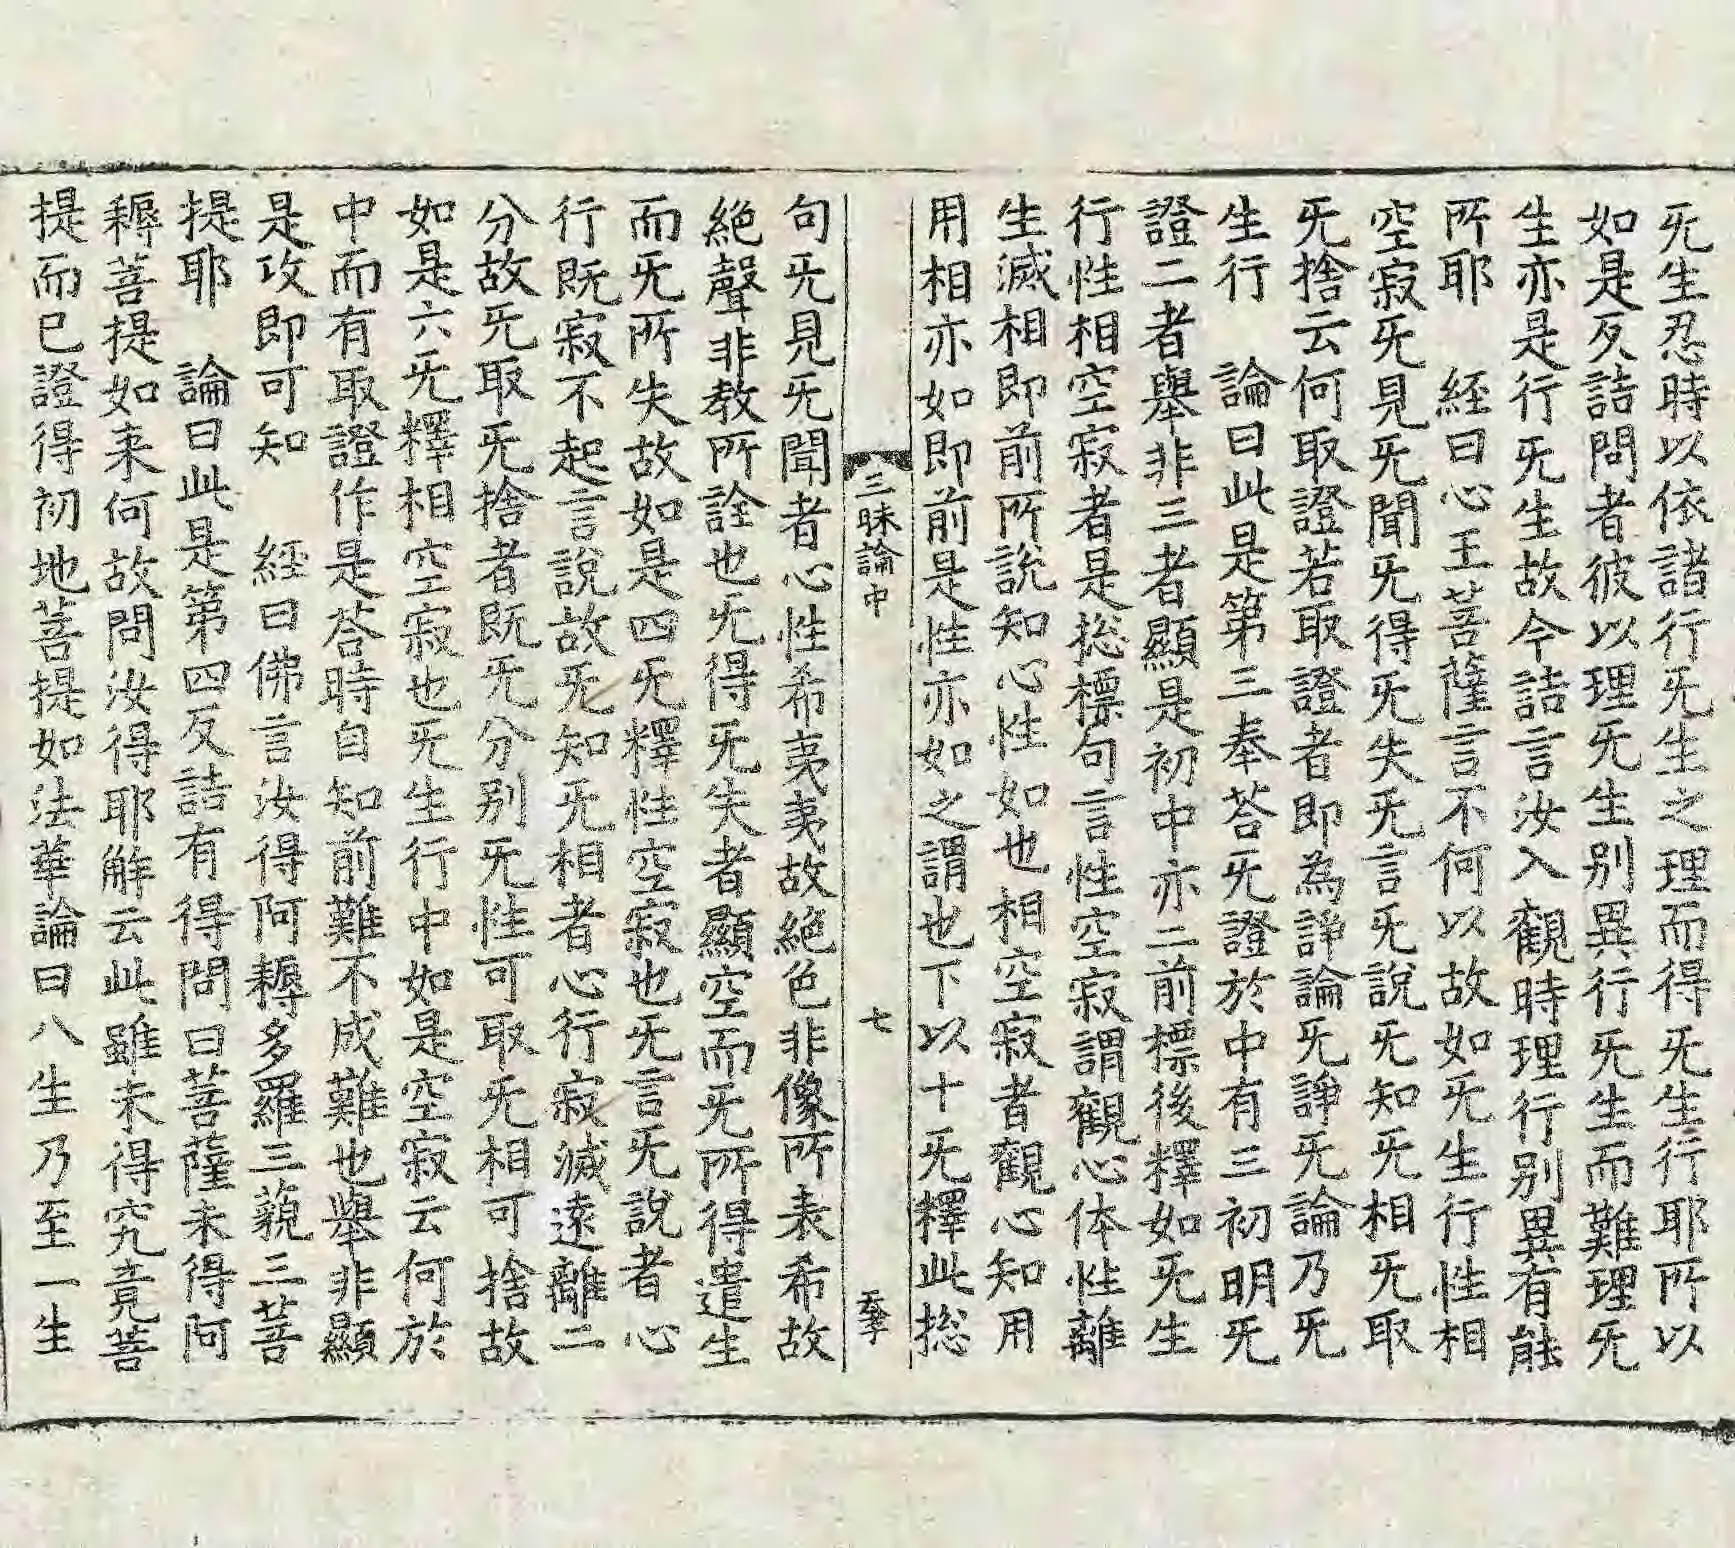 无生忍時以依諸行无生之理而得无生行耶所以
如是反詰問者彼以理无生別異行无生而難理无
生亦是行无生故今詰言汝入觀時理行別異有能
所耶　経曰心王菩薩言不何以故如无生行性相
空寂无見无聞无得无失无言无說无知无相无取
无捨云何取證若取證者即為諍論无諍无論乃无
生行　論曰此是第三奉荅无證於中有三初明无
證二者舉非三者顯是初中亦二前標後釋如无生
行性相空寂者是捴標句言性空寂謂觀心体性離
生滅相即前所說知心性如也相空寂者觀心知用
用相亦如即前是性亦如之謂也下以十无釋此捴
三昧論中　七
句无見无聞者心性希夷夷故絕色非像所表希故
絕聲非教所詮也无得无失者顯空而无所得遣生
而无所失故如是四无釋性空寂也无言无說者心
行既寂不起言說故无知无相者心行寂滅遠離二
分故无取无捨者既无分別无性可取无相可捨故
如是六无釋相空寂也无生行中如是空寂云何於
中而有取證作是荅時自知前難不成難也舉非顯
是攻即可知　経曰佛言汝得阿耨多羅三藐三菩
提耶　論曰此是第四反詰有得問曰菩薩未得阿
耨菩提如来何故問汝得耶解云此雖未得究竟菩
提而已證得初地菩提如法華論曰八生乃至一生